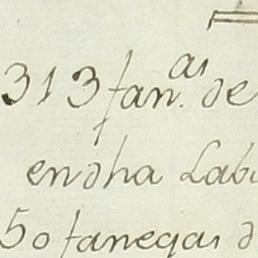 313 fan.as de
en dha Lab
50 fanegas d